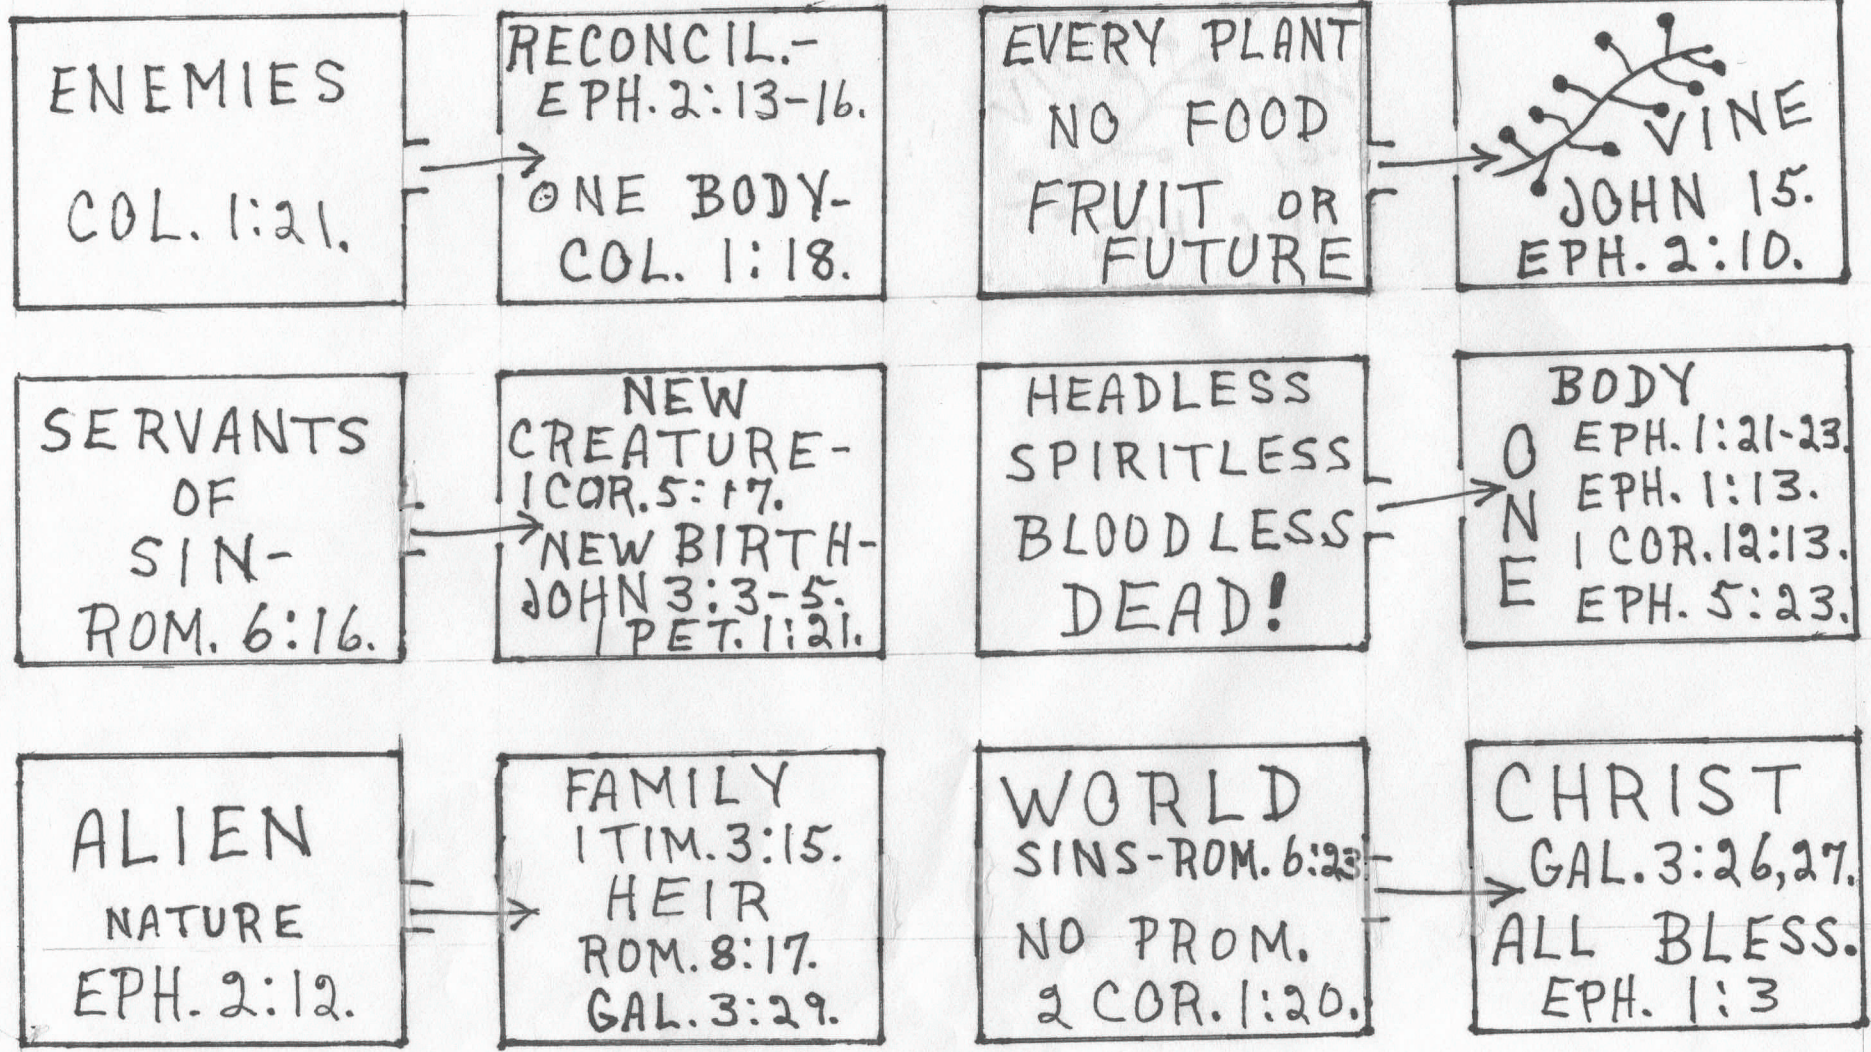 ENEMIES
COL. 1:21.
RECONCIL.-
EPH. 2:13-16.
ONE BODY-
COL. 1:18.
EVERY PLANT
NO FOOD
FRUIT OR
FUTURE
VINE
JOHN 15.
EPH. 2:10.
SERVANTS
OF
SIN-
ROM. 6:16.
NEW
CREATURE-
1 COR. 5:17.
NEW BIRTH-
JOHN 3:3-5.
1 PET. 1:21.
HEADLESS
SPIRITLESS
BLOODLESS
DEAD!
ONE
BODY
EPH. 1:21-23.
EPH. 1:13.
1 COR. 12:13.
EPH. 5:23.
ALIEN
NATURE
EPH. 2:12.
FAMILY
1 TIM. 3:15.
HEIR
ROM. 8:17.
GAL. 3:29.
WORLD
SINS-ROM. 6:23
NO PROM.
2 COR. 1:20.
CHRIST
GAL. 3:26,27.
ALL BLESS.
EPH. 1:3